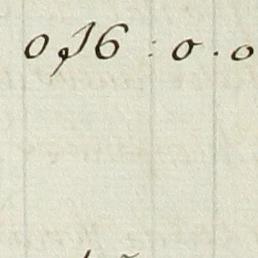 016 : 0 . 0